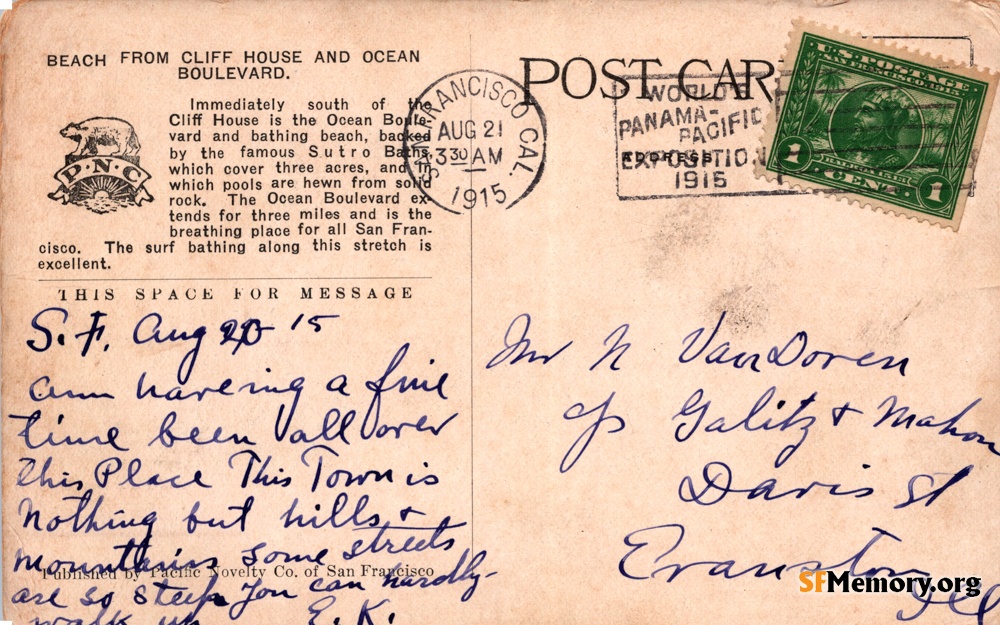 BEACH FROM CLIFF HOUSE AND OCEAN
BOULEVARD.
Immediately south of the
Cliff House is the Ocean Boule-
vard and bathing beach, backed
by the famous Sutro Baths,
which cover three acres, and in
which pools are hewn from solid
rock. The Ocean Boulevard ex-
tends for three miles and is the
breathing place for all San Fran-
cisco. The surf bathing along this stretch is
excellent.
P·N·C
THIS SPACE FOR MESSAGE
S.F. Aug 20 15
am havering a fine
time been all over
this Place This Town is
Nothing but hills &
mountains some streets
are so steep you can hardly
walk up E. K.
Published by Pacific Novelty Co. of San Francisco
POST CAR
ADDRESS
SAN FRANCISCO CAL.
AUG 21
3 30 AM
1915
WORLD'S
PANAMA-
PACIFIC
EXPOSITION
1915
U.S. POSTAGE
SAN FRANCISCO, 1915
BALBOA 1513
1 CENT 1
Mr N VanDoren
c/o Galitz & Mahon
Davis St
Evanston
Ill
SFMemory.org